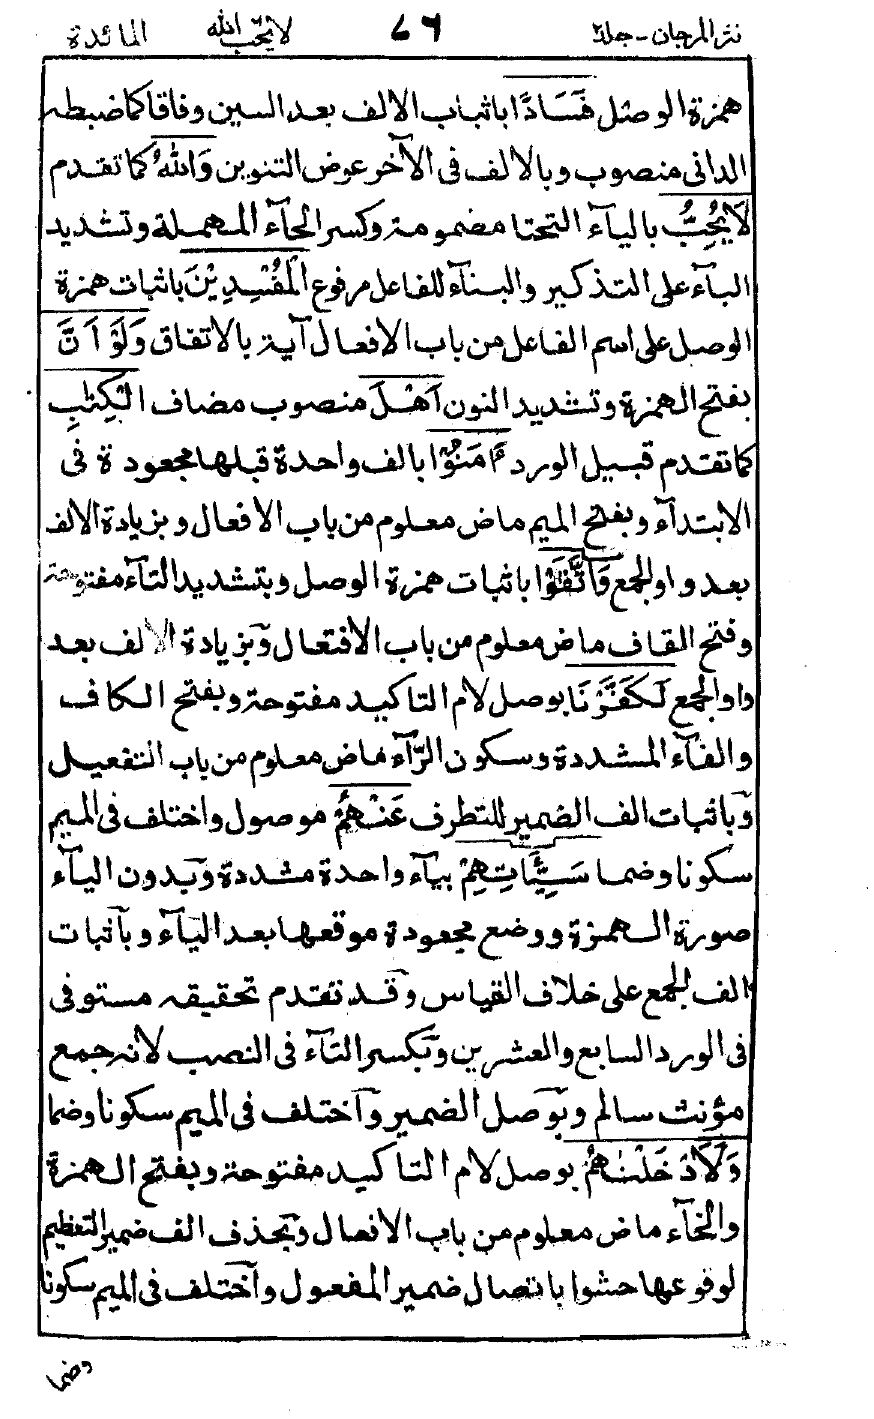 نثر المرجان - جلد٢ ٧٦ لا يحب الله المائدة
همزة الوصل فَسَادًا باثبات الالف بعد السين وفاقا كما ضبطه
الدانى منصوب وبالالف فى الآخر عوض التنوين وَاللهُ كما تقدم
لَا يُحِبُّ بالياء التحتا مضمومة وكسر الحاء المهملة وتشديد
الباء على التذكير والبناء للفاعل مرفوع الْمُفْسِدِيْنَ باثبات همزة
الوصل على اسم الفاعل من باب الافعال آية بالاتفاق وَلَوْ اَنَّ
بفتح الهمزة وتشديد النون اَهْلَ منصوب مضاف الْكِتٰبِ
كما تقدم قبيل الورد ءَامَنُوْا بالف واحدة قبلها مجعودة فى
الابتداء وبفتح الميم ماض معلوم من باب الافعال وبزيادة الالف
بعد واو الجمع وَاتَّقَوْا باثبات همزة الوصل وبتشديد التاء مفتوحة
وفتح القاف ماض معلوم من باب الافتعال وبزيادة الالف بعد
واو الجمع لَكَفَّرْنَا بوصل لام التاكيد مفتوحة وبفتح الكاف
والفاء المشددة وسكون الراء ماض معلوم من باب التفعيل
وباثبات الف الضمير للتطرف عَنْهُمْ موصول واختلف فى الميم
سكونا وضما سَيِّئَاتِهِمْ بياء واحدة مشددة وبدون الياء
صورة الهمزة ووضع مجعودة موقعها بعد الياء وباثبات
الف الجمع على خلاف القياس وقد تقدم تحقيقه مستوفى
فى الورد السابع والعشرين وبكسر التاء فى النصب لانه جمع
مؤنث سالم وبوصل الضمير واختلف فى الميم سكونا وضما
وَلَاَدْخَلْنٰهُمْ بوصل لام التاكيد مفتوحة وبفتح الهمزة
والخاء ماض معلوم من باب الافعال وبحذف الف ضمير التعظيم
لوقوعها حشوا باتصال ضمير المفعول واختلف فى الميم سكونا
وضما